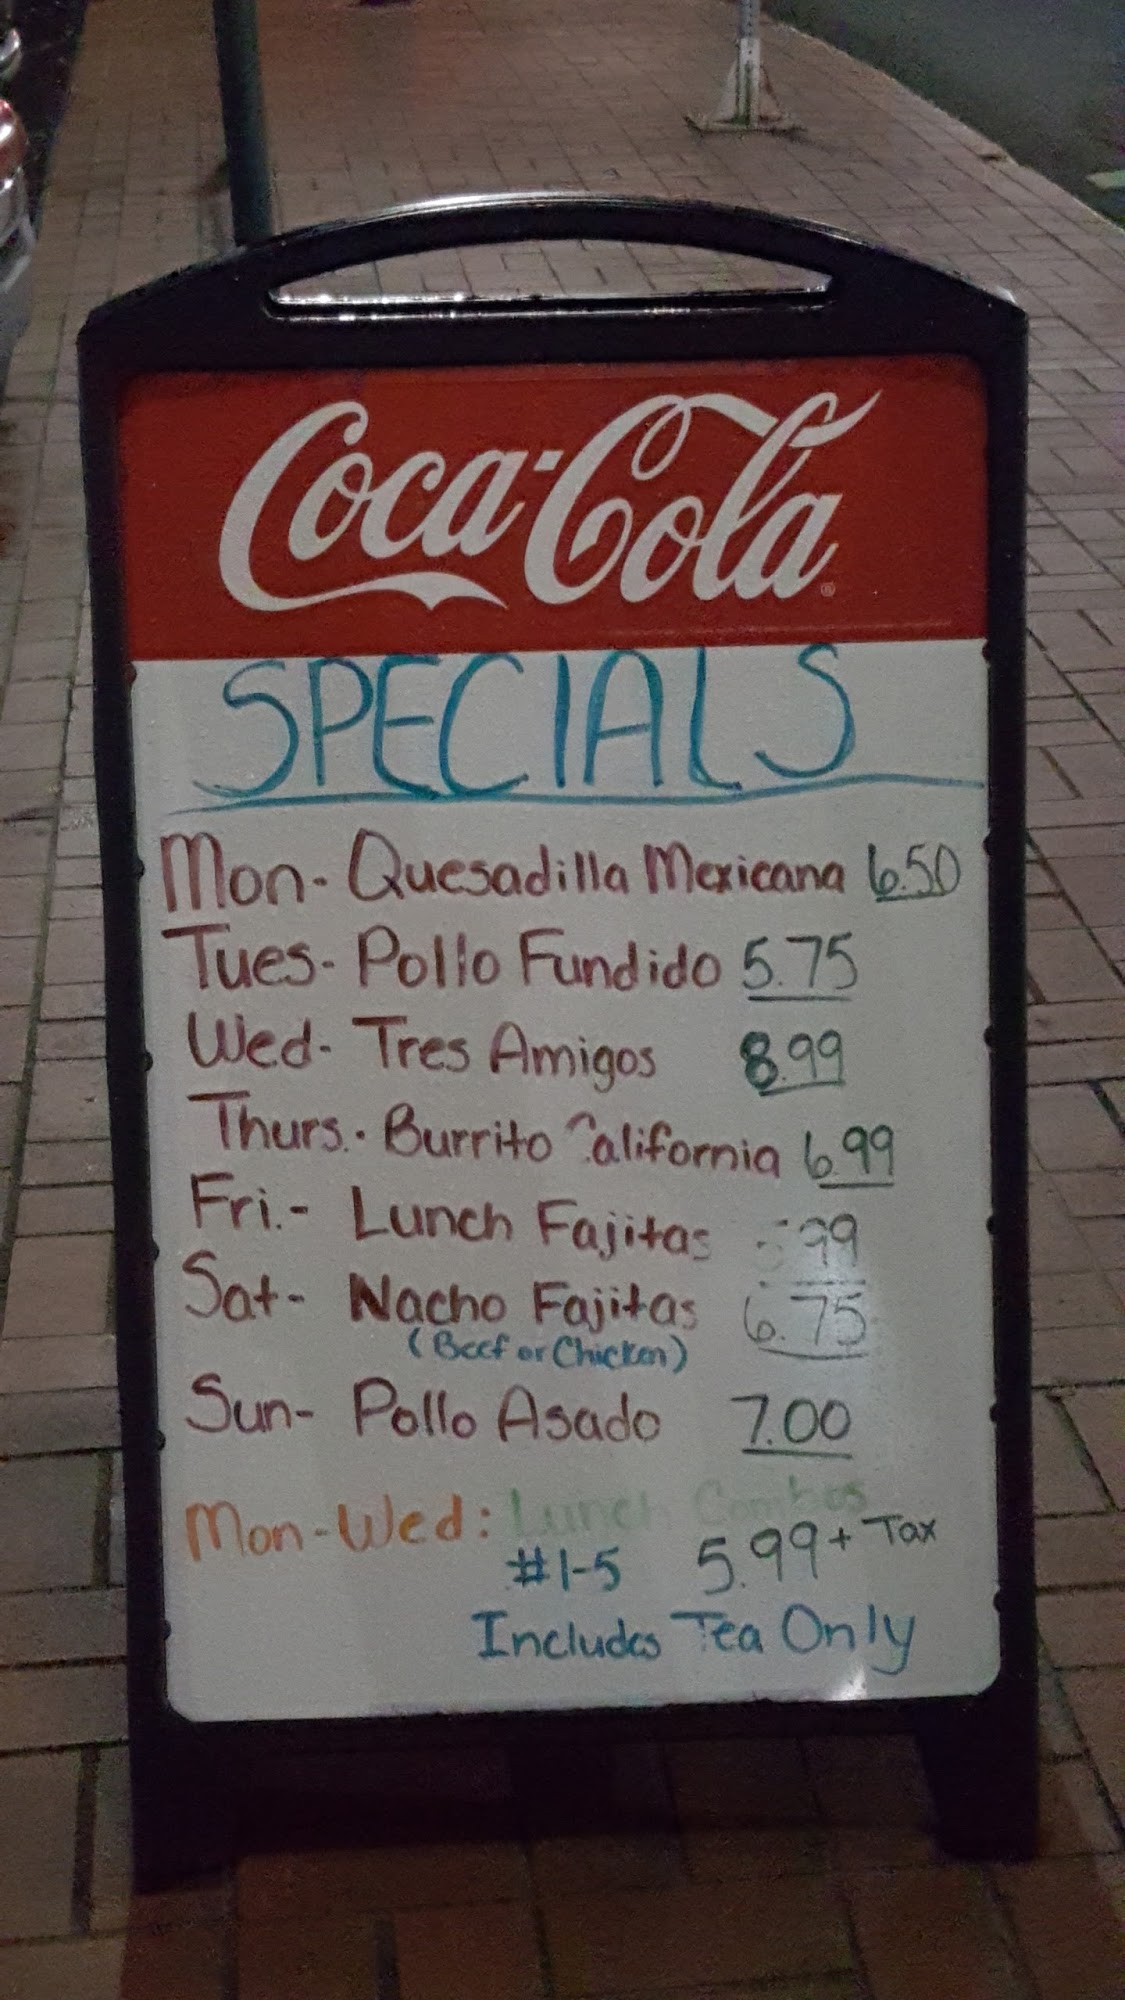 Coca-Cola
SPECIALS
Mon- Quesadilla Mexicana 6.50
Tues- Pollo Fundido 5.75
Wed- Tres Amigos 8.99
Thurs.- Burrito California 6.99
Fri.- Lunch Fajitas
Sat- Nacho Fajitas 6.75
(Beef or Chicken)
Sun- Pollo Asado 7.00
Mon-Wed: Lunch Combos
#1-5 5.99 + Tax
Includes Tea Only